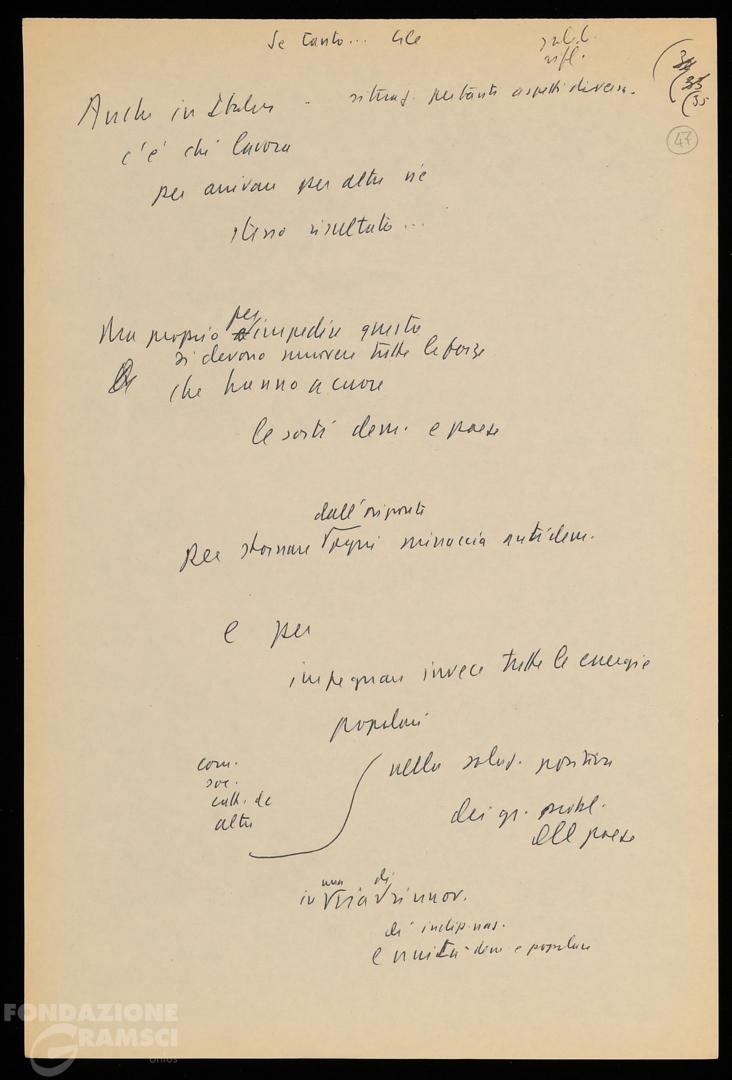 Se tanto... Cile
rifl.
(34
(35
(35
47
Anche in Italia - situaz. pertanti aspetti diversa.
c'è chi lavora
per arrivare per altre vie
stesso risultato...
Ma proprio per impedire questo
si devono muovere tutte le forze
che hanno a cuore
le sorti dem. e paese
dall'orizzonte
per stornare ogni minaccia antidem.
e per
impegnare invece tutte le energie
popolari
com.
soc.
catt. dc
altri
nella soluz. positiva
dei gr. probl.
del paese
una di
in via rinnov.
di indip. naz.
e unità dem e popolare
FONDAZIONE
GRAMSCI
onlus